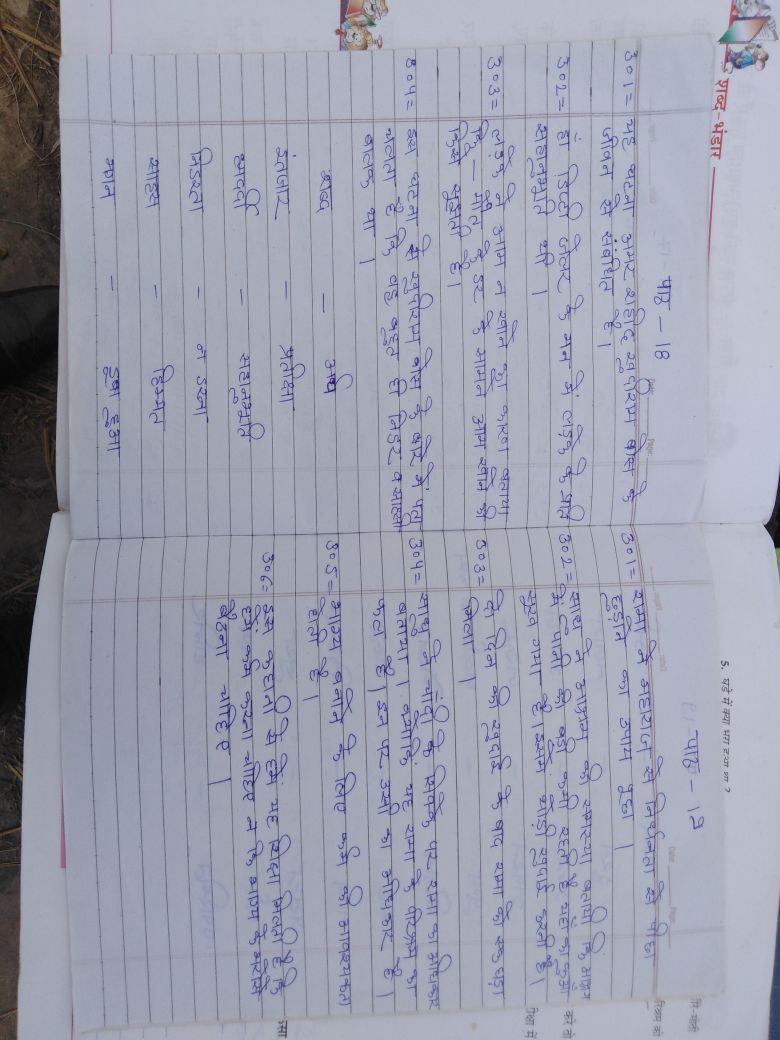 शब्द-भंडार
पाठ - 18
उ०1= यह घटना अमर शहीद खुदीराम बोस के
जीवन से संबंधित है।
उ०2= हां डिप्टी जेलर के मन में लड़के के प्रति
सहानुभूति थी।
उ०3= लड़के ने आम न खाने का कारण बताया
कि - मौत के डर के सामने आम खाने की
किसे सूझती है।
उ०4= इस घटना से खुदीराम बोस के बारे में पता
चलता है कि वह बहुत ही निडर व साहसी
बालक था।
शब्द - अर्थ
इंतजार - प्रतीक्षा
हमदर्दी - सहानुभूति
निडरता - न डरना
साहस - हिम्मत
मग्न - डूबा हुआ
5. घड़े में क्या भरा हुआ था ?
पाठ - 19
उ०1= रामा ने महात्मा से निर्धनता से पीछा
छुड़ाने का उपाय पूछा।
उ०2= साधु ने आश्रम की समस्या बतायी कि आश्रम
में पानी की बड़ी कमी रहती है यहां का कुआं
सूख गया है। इसमें थोड़ी खुदाई करनी है।
उ०3= दो दिन की खुदाई के बाद रामा को एक घड़ा
मिला।
उ०4= साधु ने चांदी के सिक्के पर रामा का अधिकार
बताया। क्योंकि यह रामा के परिश्रम का
फल है। इन पर उसी का अधिकार है।
उ०5= भाग्य बनाने के लिए कर्म की आवश्यकता
होती है।
उ०6= इस कहानी से हमें यह शिक्षा मिलती है कि
हमें कर्म करना चाहिए न कि भाग्य के भरोसे
बैठना चाहिए।